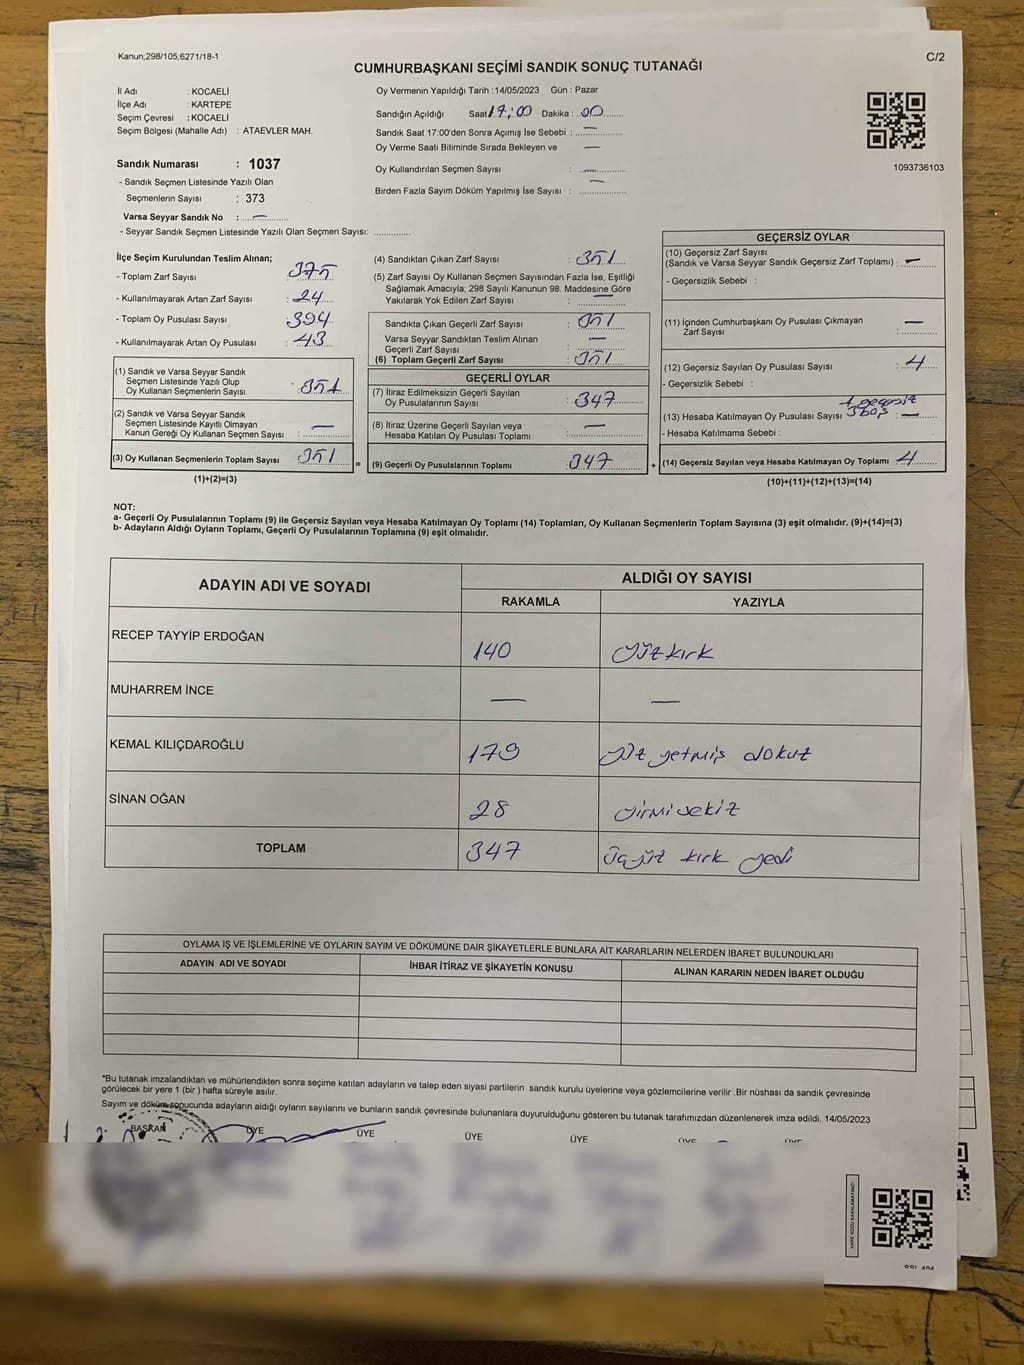 Kanun;298/105;6271/18-1
C/2
CUMHURBAŞKANI SEÇİMİ SANDIK SONUÇ TUTANAĞI
İl Adı : KOCAELİ
İlçe Adı : KARTEPE
Seçim Çevresi : KOCAELİ
Seçim Bölgesi (Mahalle Adı) : ATAEVLER MAH.
Sandık Numarası : 1037
- Sandık Seçmen Listesinde Yazılı Olan
Seçmenlerin Sayısı : 373
Varsa Seyyar Sandık No : —
- Seyyar Sandık Seçmen Listesinde Yazılı Olan Seçmen Sayısı: ..............
Oy Vermenin Yapıldığı Tarih :14/05/2023 Gün : Pazar
Sandığın Açıldığı Saat 17:00 Dakika : 00
Sandık Saat 17:00'den Sonra Açımış İse Sebebi : —
Oy Verme Saati Bitiminde Sırada Bekleyen ve —
Oy Kullandırılan Seçmen Sayısı : —
Birden Fazla Sayım Döküm Yapılmış İse Sayısı : —
1093736103
İlçe Seçim Kurulundan Teslim Alınan;
- Toplam Zarf Sayısı : 375
- Kullanılmayarak Artan Zarf Sayısı : 24
- Toplam Oy Pusulası Sayısı : 394
- Kullanılmayarak Artan Oy Pusulası : 43
(1) Sandık ve Varsa Seyyar Sandık
Seçmen Listesinde Yazılı Olup
Oy Kullanan Seçmenlerin Sayısı : 351
(2) Sandık ve Varsa Seyyar Sandık
Seçmen Listesinde Kayıtlı Olmayan
Kanun Gereği Oy Kullanan Seçmen Sayısı : —
(3) Oy Kullanan Seçmenlerin Toplam Sayısı 351
(1)+(2)=(3)
(4) Sandıktan Çıkan Zarf Sayısı : 351
(5) Zarf Sayısı Oy Kullanan Seçmen Sayısından Fazla İse, Eşitliği
Sağlamak Amacıyla; 298 Sayılı Kanunun 98. Maddesine Göre
Yakılarak Yok Edilen Zarf Sayısı : —
Sandıkta Çıkan Geçerli Zarf Sayısı : 351
Varsa Seyyar Sandıktan Teslim Alınan
Geçerli Zarf Sayısı : —
(6) Toplam Geçerli Zarf Sayısı : 351
GEÇERLİ OYLAR
(7) İtiraz Edilmeksizin Geçerli Sayılan
Oy Pusulalarının Sayısı : 347
(8) İtiraz Üzerine Geçerli Sayılan veya
Hesaba Katılan Oy Pusulası Toplamı : —
= (9) Geçerli Oy Pusulalarının Toplamı : 347
GEÇERSİZ OYLAR
(10) Geçersiz Zarf Sayısı
(Sandık ve Varsa Seyyar Sandık Geçersiz Zarf Toplamı) : —
- Geçersizlik Sebebi :
(11) İçinden Cumhurbaşkanı Oy Pusulası Çıkmayan
Zarf Sayısı : —
(12) Geçersiz Sayılan Oy Pusulası Sayısı : 4
- Geçersizlik Sebebi :
1 geçersiz
3 boş
(13) Hesaba Katılmayan Oy Pusulası Sayısı : —
- Hesaba Katılmama Sebebi :
+ (14) Geçersiz Sayılan veya Hesaba Katılmayan Oy Toplamı 4
(10)+(11)+(12)+(13)=(14)
NOT:
a- Geçerli Oy Pusulalarının Toplamı (9) ile Geçersiz Sayılan veya Hesaba Katılmayan Oy Toplamı (14) Toplamları, Oy Kullanan Seçmenlerin Toplam Sayısına (3) eşit olmalıdır. (9)+(14)=(3)
b- Adayların Aldığı Oyların Toplamı, Geçerli Oy Pusulalarının Toplamına (9) eşit olmalıdır.
ADAYIN ADI VE SOYADI
ALDIĞI OY SAYISI
RAKAMLA YAZIYLA
RECEP TAYYİP ERDOĞAN 140 yüzkırk
MUHARREM İNCE — —
KEMAL KILIÇDAROĞLU 179 yüz yetmiş dokuz
SİNAN OĞAN 28 yirmi sekiz
TOPLAM 347 üçyüz kırk yedi
OYLAMA İŞ VE İŞLEMLERİNE VE OYLARIN SAYIM VE DÖKÜMÜNE DAİR ŞİKAYETLERLE BUNLARA AİT KARARLARIN NELERDEN İBARET BULUNDUKLARI
ADAYIN ADI VE SOYADI İHBAR İTİRAZ VE ŞİKAYETİN KONUSU ALINAN KARARIN NEDEN İBARET OLDUĞU
*Bu tutanak imzalandıktan ve mühürlendikten sonra seçime katılan adayların ve talep eden siyasi partilerin sandık kurulu üyelerine veya gözlemcilerine verilir .Bir nüshası da sandık çevresinde
görülecek bir yere 1 (bir ) hafta süreyle asılır.
Sayım ve döküm sonucunda adayların aldığı oyların sayılarını ve bunların sandık çevresinde bulunanlara duyurulduğunu gösteren bu tutanak tarafımızdan düzenlenerek imza edildi. 14/05/2023
BAŞKAN ÜYE ÜYE ÜYE ÜYE ÜYE ÜYE
KARE KODU KARALAMAYINIZ!